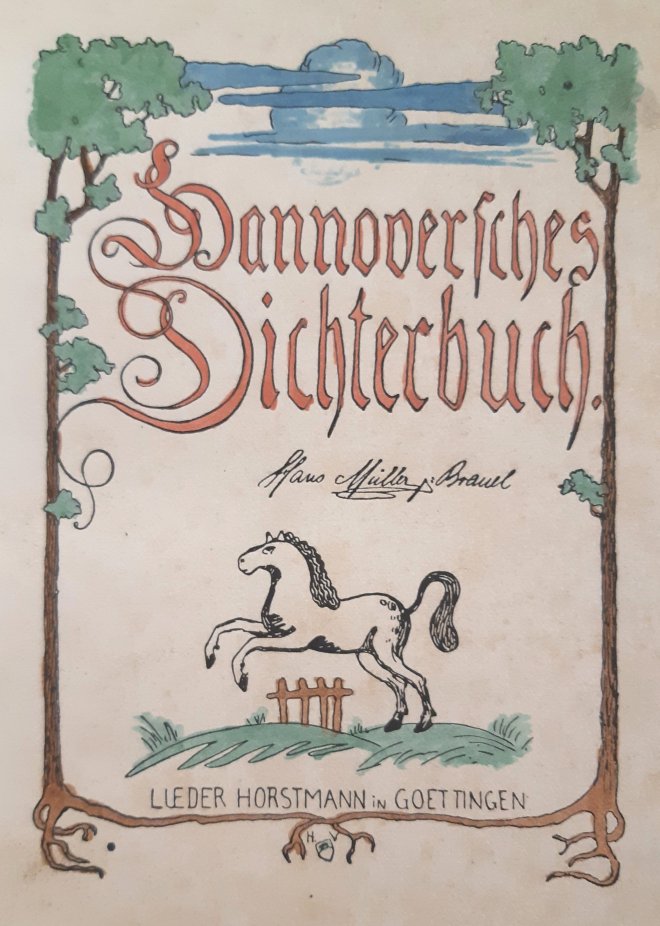 Hannoverſches
Dichterbuch.
Hans Müller-Brauel
LUEDER HORSTMANN in GOETTINGEN
H V